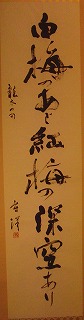 白梅のあと紅梅の深空あり
龍太の句